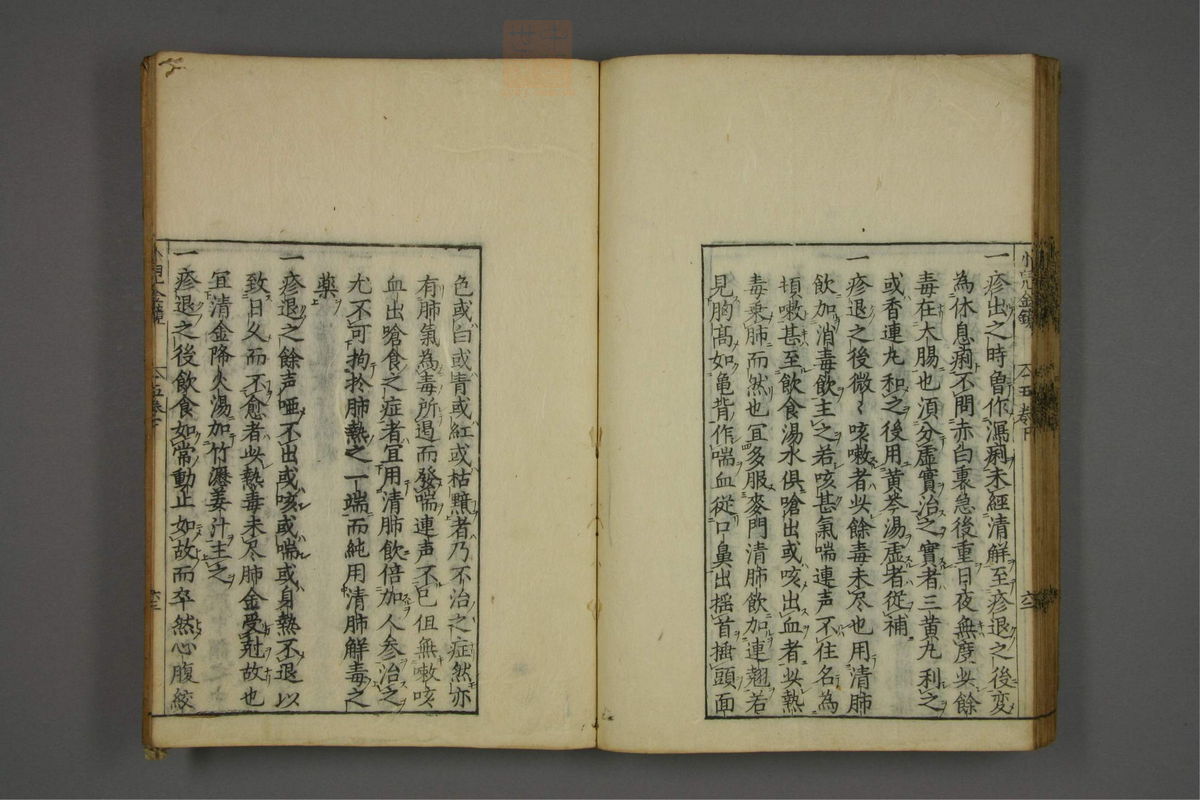 一疹出之時曽作瀉痢未經清解至疹退之後変
為休息痢不問赤白裏急後重日夜無度此餘
毒在大腸也須分虚實治之實者三黄丸利之
或香連丸和之後用黄芩湯虚者從補
一疹退之後微〻咳嗽者此餘毒未尽也用清肺
飲加消毒飲主之若咳甚氣喘連声不住名為
頓嗽甚至飲食湯水俱嗆出或咳出血者此熱
毒乗肺而然也冝多服麥門清肺飲加連翹若
見胸高如亀背作喘血従口鼻出揺首擂頭面
色或白或青或紅或枯黯者乃不治之症然亦
有肺氣為毒所遏而發喘連声不已但無嗽咳
血出嗆食之症者冝用清肺飲倍加人参治之
尤不可拘扵肺熱之一端而純用清肺解毒之
薬
一疹退之餘声唖不出或咳或喘或身熱不退以
致日久而不愈者此熱毒未尽肺金受尅故也
冝清金降火湯加竹瀝姜汁主之
一疹退之後飲食如常動止如故而卒然心腹絞